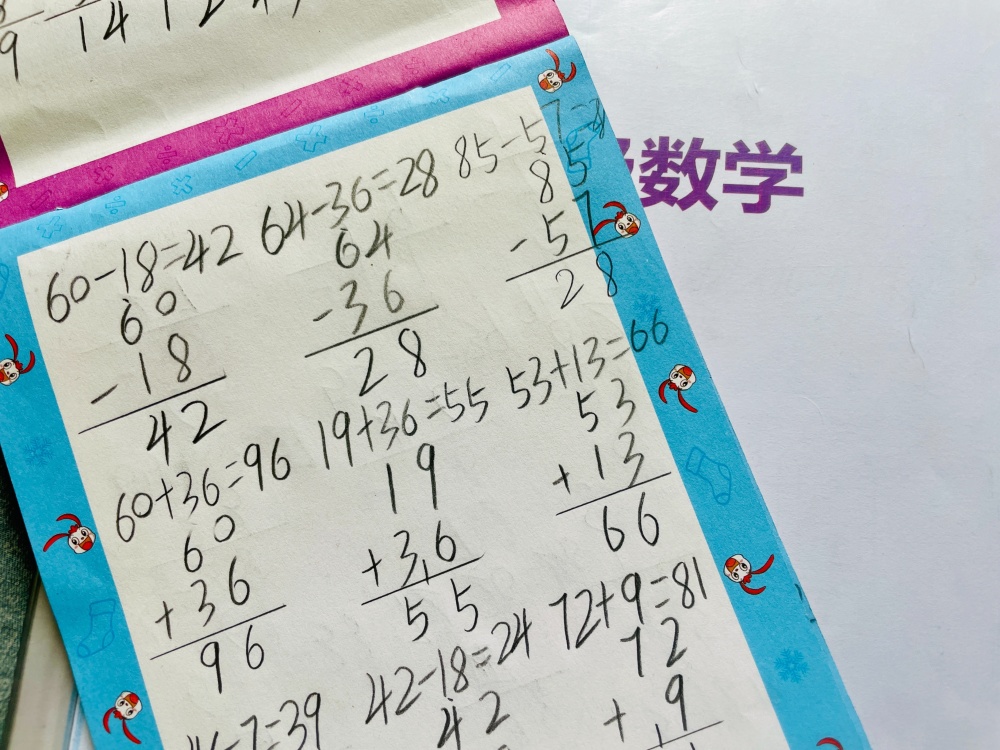 9 14 1 2
数学
60-18=42 64-36=28 85-57=2
60 64 85
-18 -36 -57
42 28 28
60+36=96 19+36=55 53+13=66
60 19 53
+36 +36 +13
96 55 66
-7=39 42-18=24 72+9=81
42 72
+9